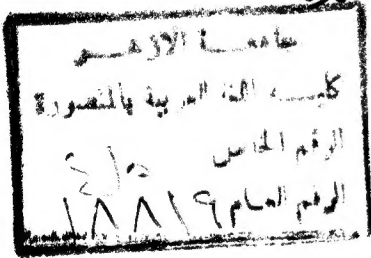 جامعة الازهر
كلية اللغة العربية بالمنصورة
الرقم الخاص
الرقم العام ١٨٨١٩